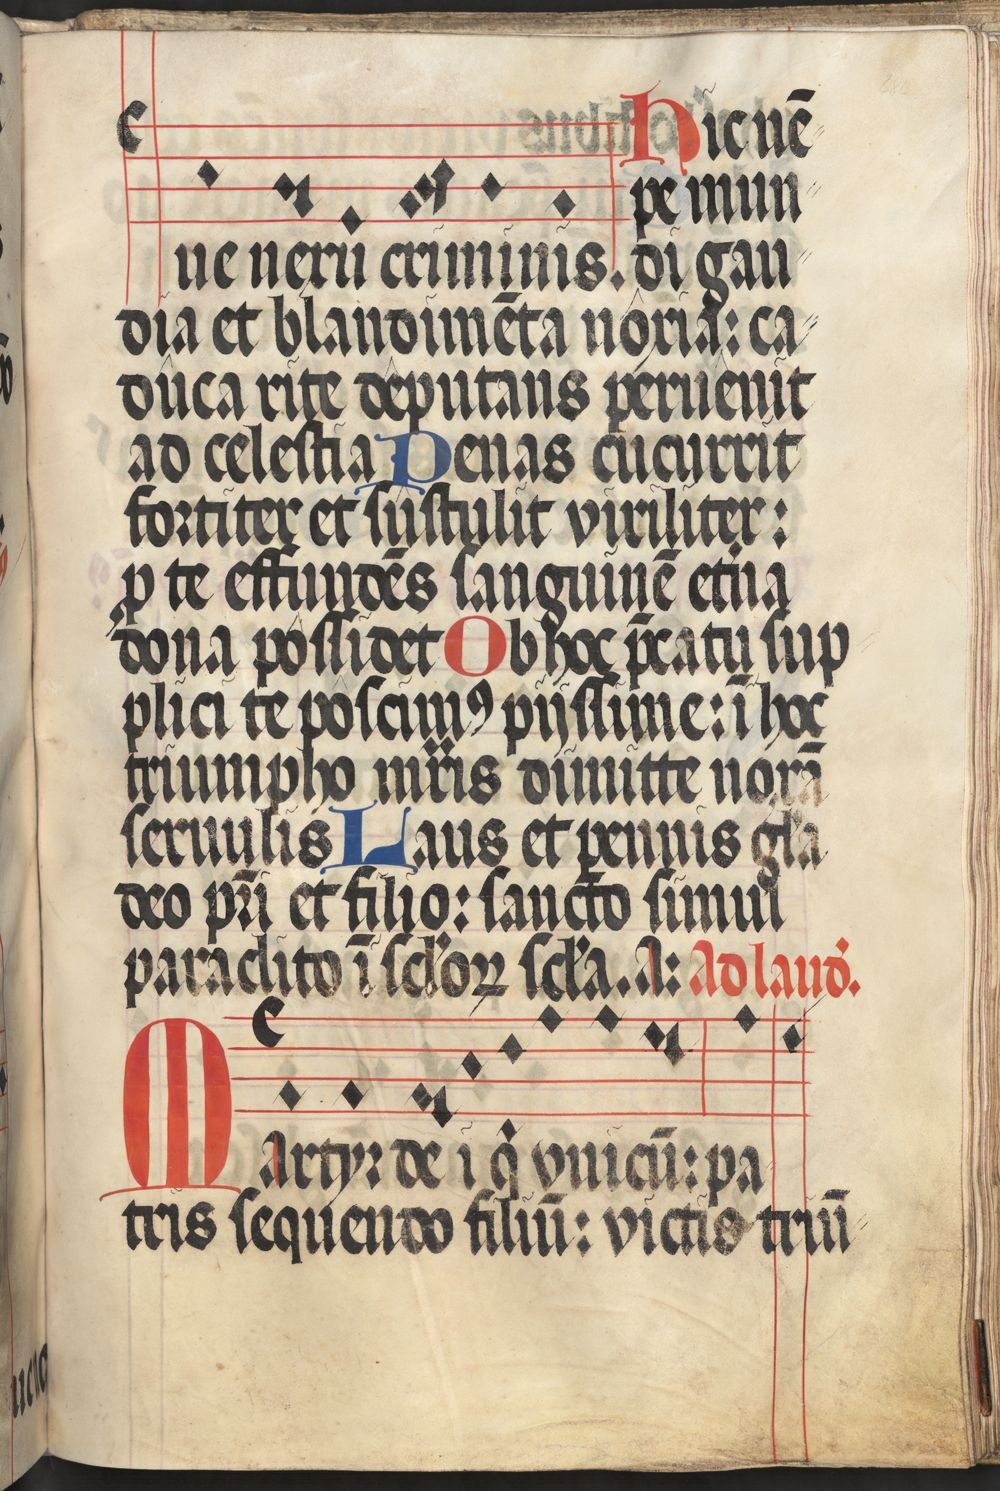 Hic nē
pe mun
ue nerii criminis. di gau
dia et blandimēta noxia: ca
duca rite deputans peruenit
ad celestia Penas cucurrit
fortiter et sustulit viriliter:
p te effundēs sanguinē etna
dona possidet Ob hoc p̄catu sup
plici te poscimꝰ pijssime: ī hoc
triumpho mr̄is dimitte noxā
seruulis Laus et pennis gl̄a
deo pr̄i et filio: sancto simul
paraclito ī scl̓oꝝ scl̓a. A: Ad laud̓.
Martyr de i q̓ vnicū: pa
tris sequendo filiū: victis triū